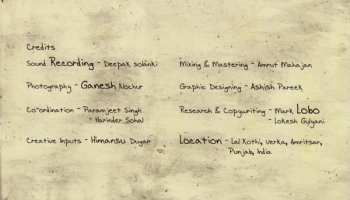 Credits
Sound Recording - Deepak solanki
Photography - Ganesh Nochur
Co-ordination - Paramjeet Singh
- Harinder Sohal
Creative Inputs - Himansu Dugar
Mixing & Mastering - Amrut Mahajan
Graphic Designing - Ashish Pareek
Research & Copywriting - Mark Lobo
- Lokesh Gulyani
Location - Lal Kothi, Verka, Amritsar,
Punjab, India